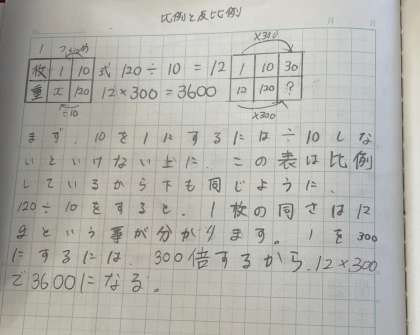 比例と反比例
×300
枚 1 10 式 120÷10=12 1 10 30
重 x 120 12×300=3600 12 120 ?
÷10 ×300
まず、10を1にするには÷10しな
いといけない上に、この表は比例
しているから下も同じように、
120÷10をすると、1枚の同さは12
gという事が分かります。1を300
にするには、300倍するから、12×300
で3600になる。